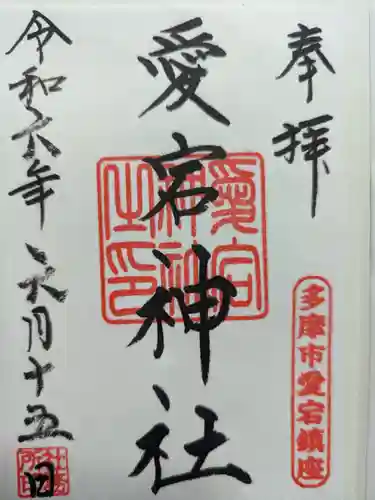 奉拝
多摩市愛宕鎮座
愛宕神社
愛宕神社之印
令和六年六月十五日